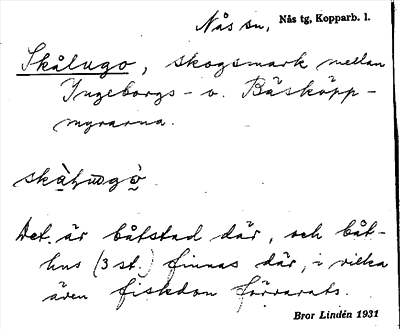 Nås sn, Nås tg, Kopparb. l.
Skålugo, skogsmark mellan
Ingeborgs- o. Bäsköpp-
myrarna.
Det. är båtstad där, och båt-
hus (3 st.) finnas där, i vilka
även fiskdon förvarats.
Bror Lindén 1931